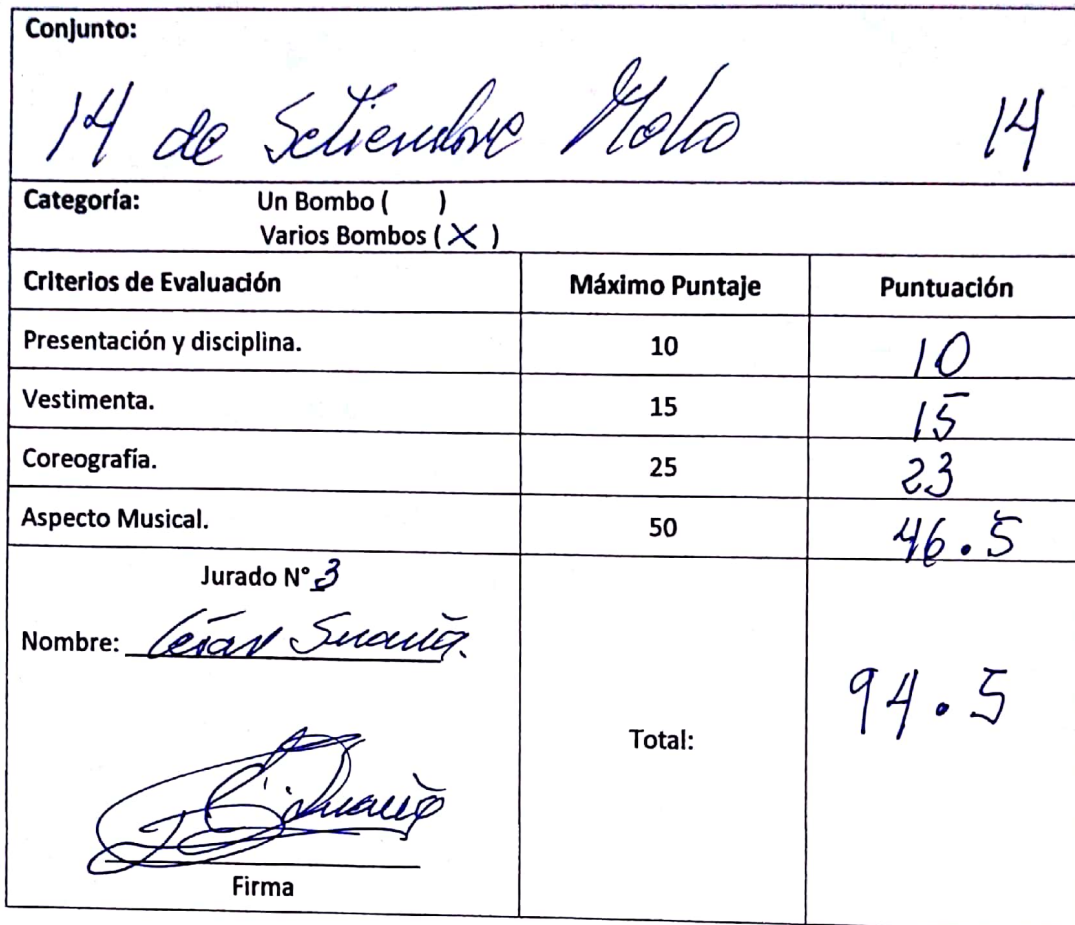 Conjunto:
14 de Setiembre Moho 14
Categoría: Un Bombo ( )
Varios Bombos ( X )
Criterios de Evaluación Máximo Puntaje Puntuación
Presentación y disciplina. 10 10
Vestimenta. 15 15
Coreografía. 25 23
Aspecto Musical. 50 46.5
Jurado N° 3
Nombre: César Suaña.
Total: 94.5
Firma